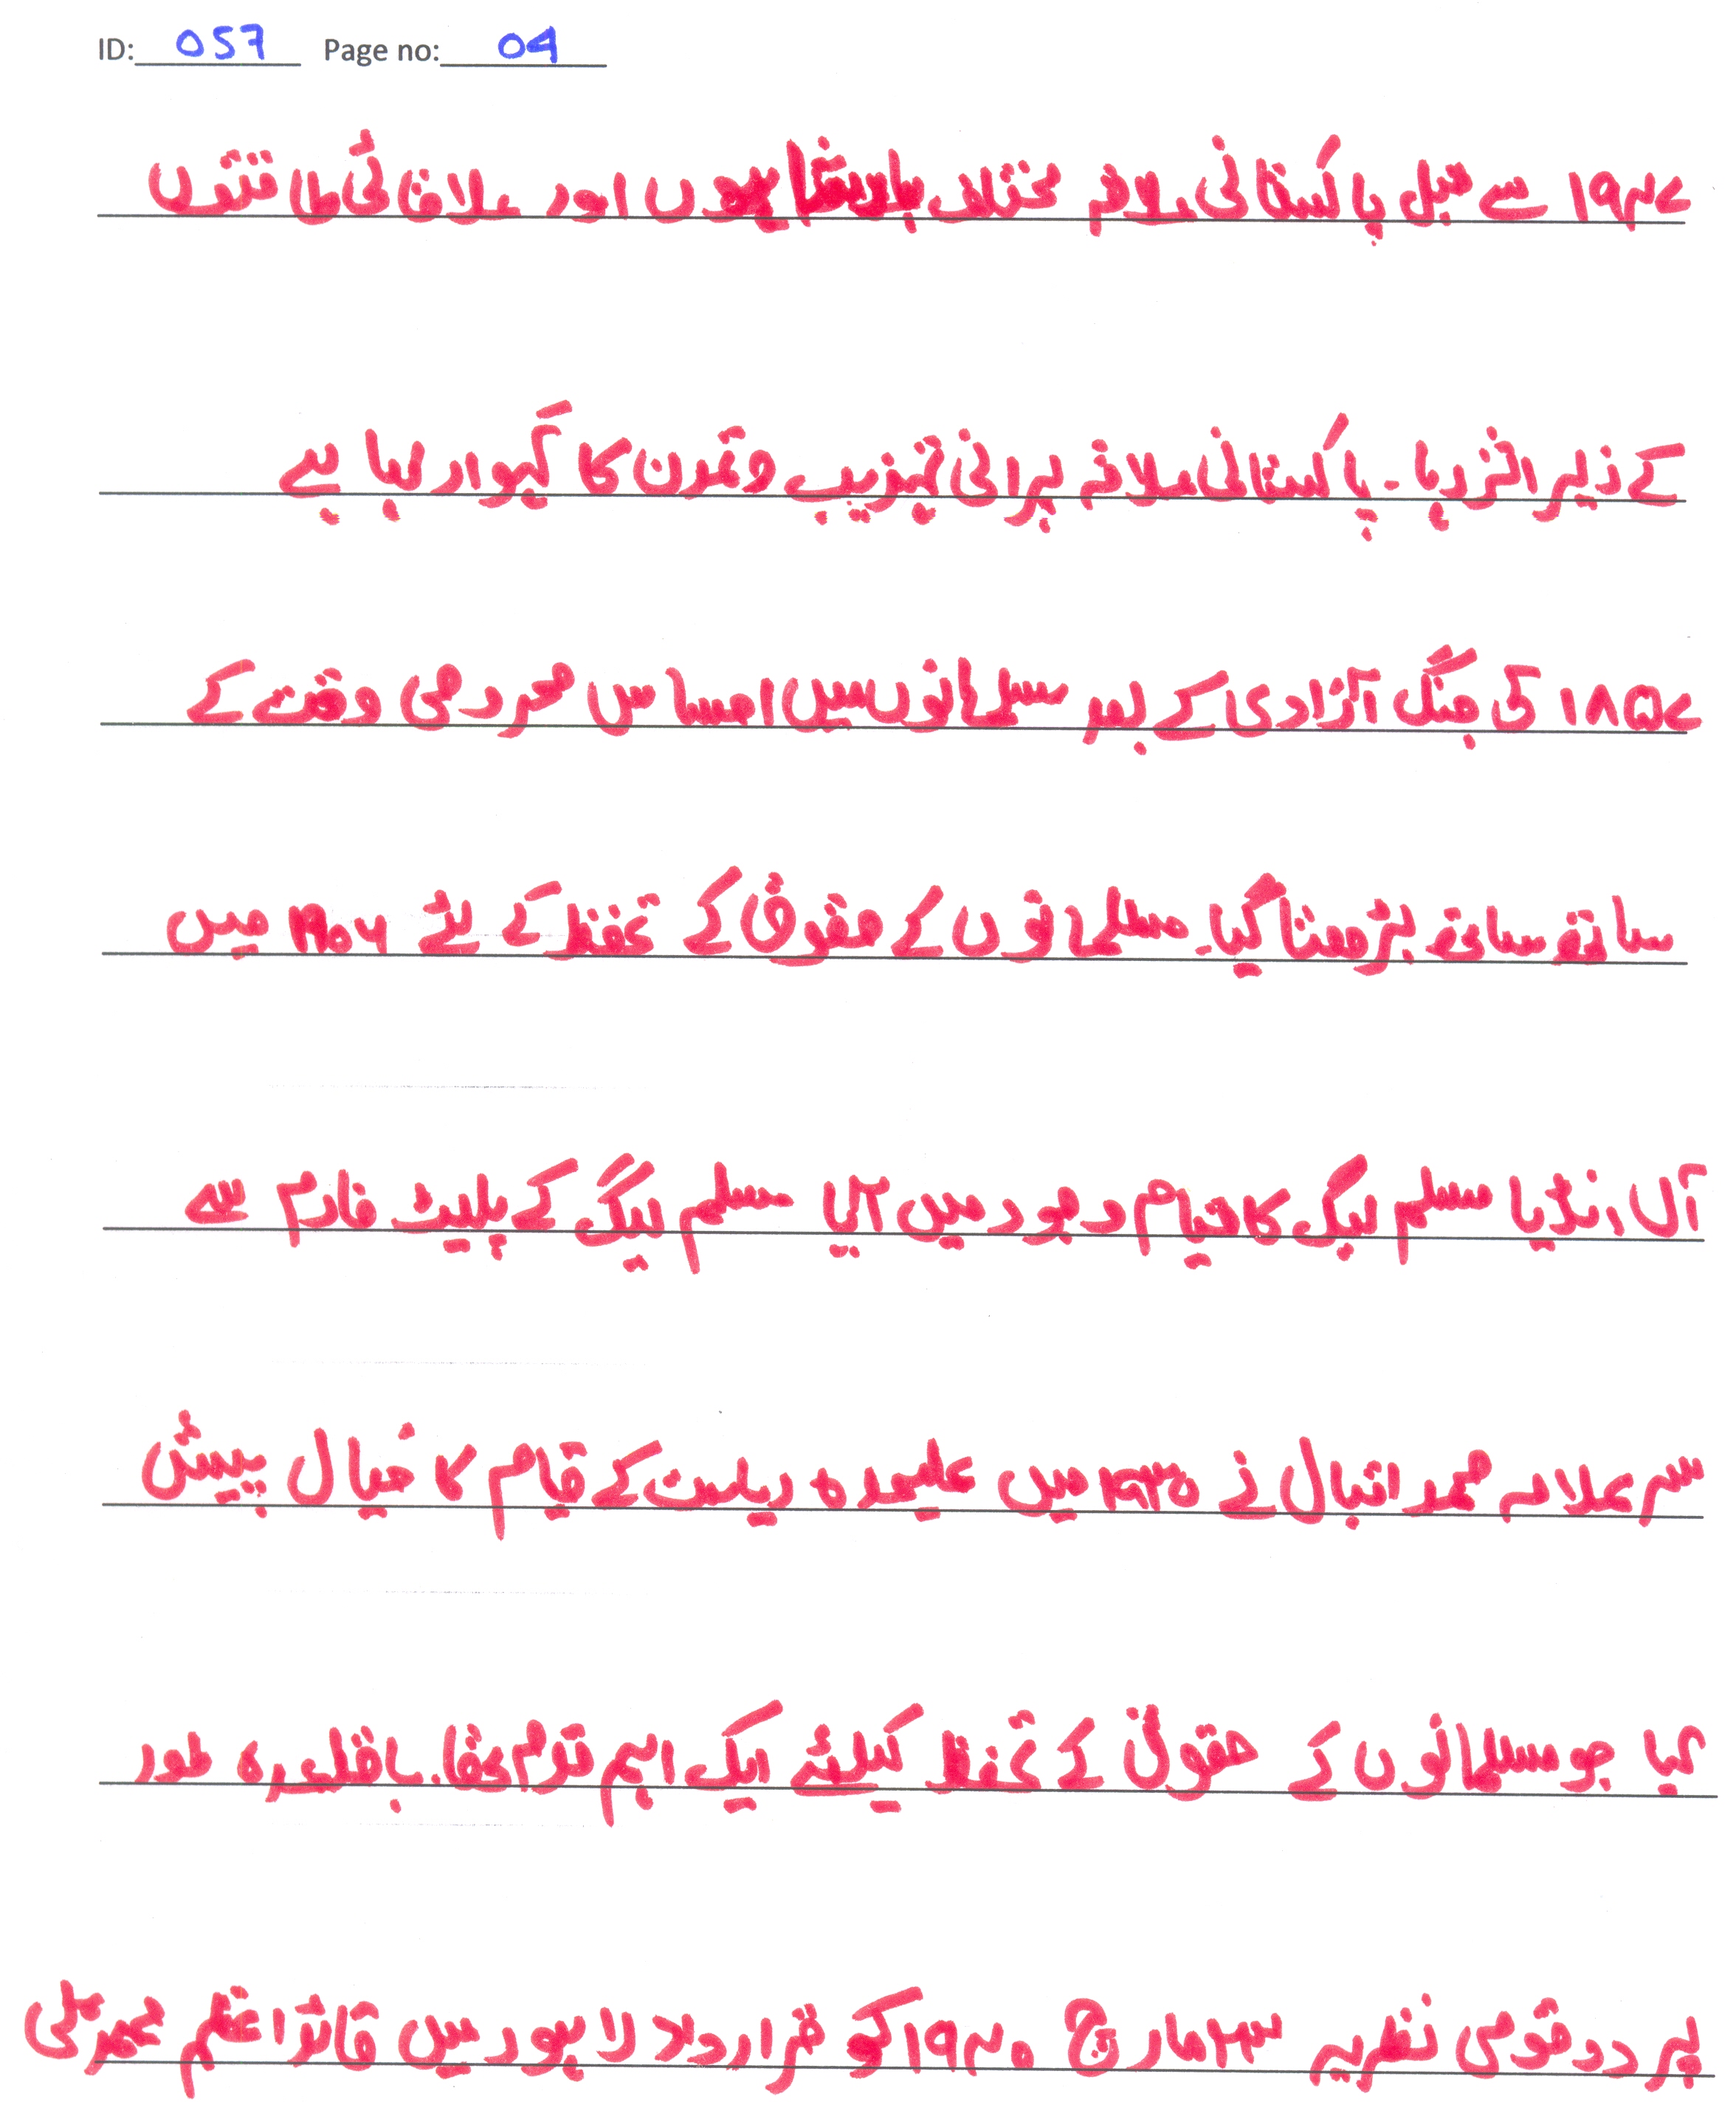 ID: 057 Page no: 04
۱۹۴۷ سے قبل پاکستانی علاقہ مختلف بادشاہوں اور علاقائی طاقتوں
کے زیر اثر رہا۔ پاکستانی علاقہ پرانی تہزیب وتمدن کا گہوار رہا ہے
۱۸۵۷ کی جنگ آزادی کے بعد مسلمانوں میں احساس محرومی وقت کے
ساتھ ساتھ بڑھتا گیا۔ مسلمانوں کے حقوق کے تحفظ کے لئے ۱۹۰۶ میں
آل انڈیا مسلم لیگ کا قیام وجود میں آیا مسلم لیگ کے پلیٹ فارم سے
سر علامہ محمد اقبال نے ۱۹۳۰ میں علیحدہ ریاست کے قیام کا خیال پیش
کیا جو مسلمانوں کے حقوق کے تحفظ کیلئے ایک اہم قدم تھا۔ باقاعدہ طور
پر دو قومی نظریہ ۲۳ مارچ ۱۹۴۰ کو قرارداد لاہور میں قائد اعظم محمد علی